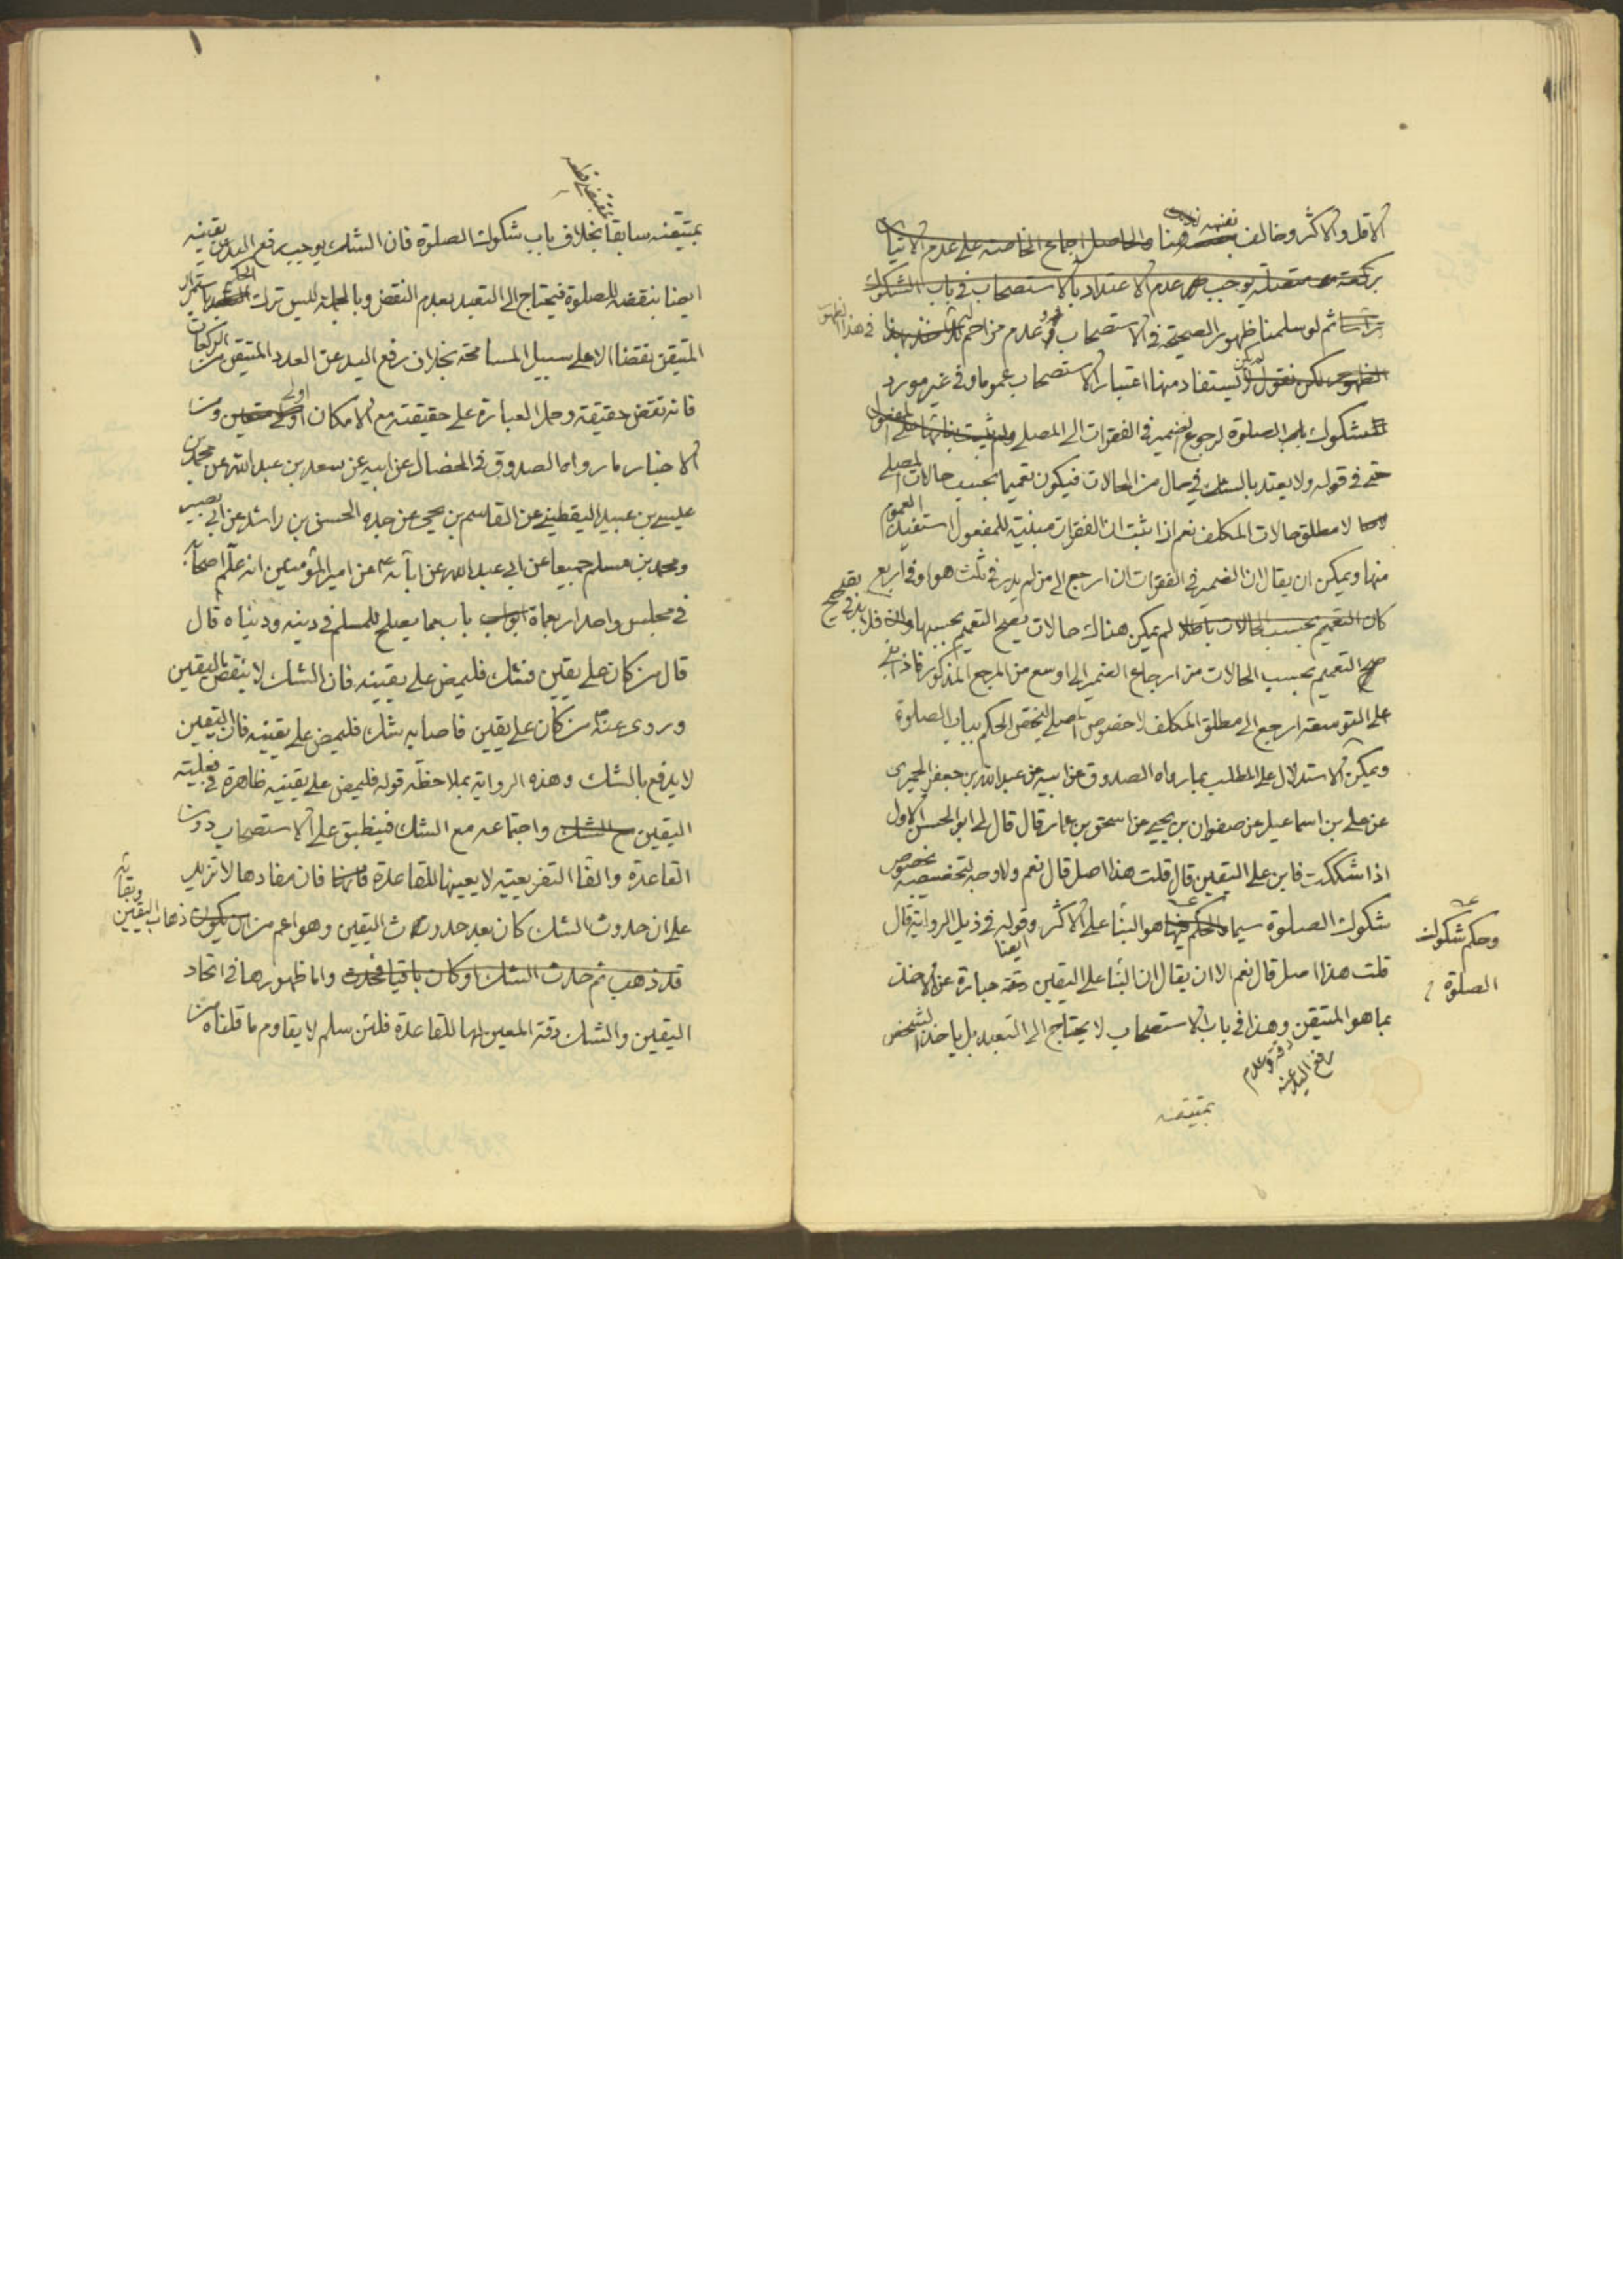 الاقل والاكثر وخالف نفسه هنا والحاصل اجماع الخاصة على عدم الاتيان
بركعة متصلة يوجب عدم الاعتداد بالاستصحاب في باب الشكوك
ثم لو سلمنا ظهور الصحيحة في الاستصحاب وعدم مزاحم في هذا الظهور
الظهور لكن نقول لا يستفاد منها اعتبار الاستصحاب عموما وفي غير مورد
الشكوك باب الصلوة لرجوع الضمير في الفقرات الى المصلي ولم يثبت بنائها على المفعول
حتى في قوله ولا يعتد بالشك في حال من الحالات فيكون تعميما بحسب حالات المصلي
لا مطلق حالات المكلف نعم اذا ثبت ان الفقرات مبنية للمفعول استفيد العموم
منها ويمكن ان يقال ان الضمير في الفقرات ان ارجع الى من لم يدر في ثلث هو او في اربع
كان التعميم بحسب الحالات باطلا لم يكن هناك حالات يصح التعميم بحسبها فلا بد في تصحيح
التعميم بحسب الحالات من ارجاع الضمير الى اوسع من المرجع المذكور فاذا بني
على التوسعة ارجع الى مطلق المكلف لا خصوص المصلي ليختص الحكم بباب الصلوة
ويمكن الاستدلال على المطلب بما رواه الصدوق عن ابيه عن عبد الله بن جعفر الحميري
عن علي بن اسماعيل عن صفوان بن يحيى عن اسحق بن عمار قال قال لي ابو الحسن الاول
اذا شككت فابن على اليقين قال قلت هذا اصل قال نعم ولا وجه لتخصيصه بخصوص
شكوك الصلوة سيما والحكم فيها هو البناء على الاكثر وقوله في ذيل الرواية قال
وحكم شكوك
الصلوة
قلت هذا اصل قال نعم الا ان يقال ان البناء على اليقين ايضا عبارة عن الاخذ
بما هو المتيقن وهذا في باب الاستصحاب لا يحتاج الى التعبد بل ياخذ الشخص
وعدم
رفع اليد عنه
بمتيقنه
بمتيقنه سابقا بخلاف باب شكوك الصلوة فان الشك يوجب رفع اليد عن يقينه
ايضا بنقضه للصلوة فيحتاج الى التعبد بعدم النقض وبالجملة ليس ترك الحكم باستمرار
المتيقن نقضا الا على سبيل المسامحة بخلاف رفع اليد عن العدد المتيقن من الركعات
فانه نقض حقيقة وحمل العبارة على حقيقته مع الامكان اولى ومن
الاخبار ما رواه الصدوق في الخصال عن ابيه عن سعد بن عبد الله عن محمد بن
عيسى بن عبيد اليقطيني عن القاسم بن يحيى عن جده الحسن بن راشد عن ابي بصير
ومحمد بن مسلم جميعا عن ابي عبد الله عن ابائه عن امير المؤمنين انه علم اصحابه
في مجلس واحد اربعماة باب مما يصلح للمسلم في دينه ودنياه قال
قال من كان على يقين فشك فليمض على يقينه فان الشك لا ينقض اليقين
وروى عنه من كان على يقين فاصابه شك فليمض على يقينه فان اليقين
لا يدفع بالشك وهذه الرواية بملاحظة قوله فليمض على يقينه ظاهرة في فعلية
اليقين مع الشك واجتماعه مع الشك فينطبق على الاستصحاب دون
القاعدة والفاء التفريعية لا يعينها للقاعدة فان مفادها لا تزيد
على ان حدوث الشك كان بعد حدوث اليقين وهو اعم من ان يكون ذهاب اليقين
وبقائه
قد ذهب ثم حدث الشك او كان باقيا واما ظهورها في اتحاد
اليقين والشك دقة المعين لها للقاعدة فلئن سلم لا يقاوم ما قلناه من